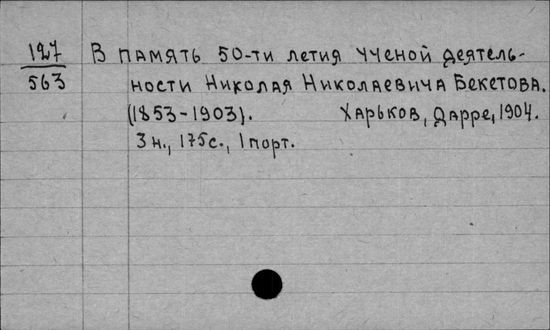 127
563
В память 50-ти летия ученой деятель-
ности Николая Николаевича Бекетова.
(1853-1903). Харьков, Дарре, 1904.
3 н., 175 с., 1 порт.